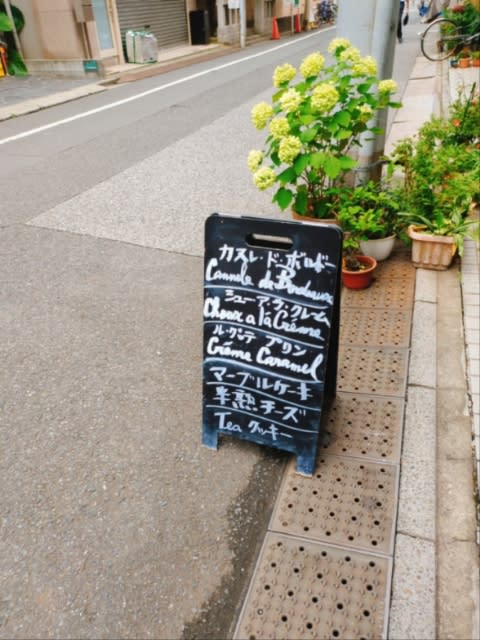 カヌレ・ド・ボルドー
Cannele de Bordeaux
シュー・ア・ラ・クレーム
Choux a la Crème
ル・クテ プリン
Créme Caramel
マーブルケーキ
半熟チーズ
Tea クッキー